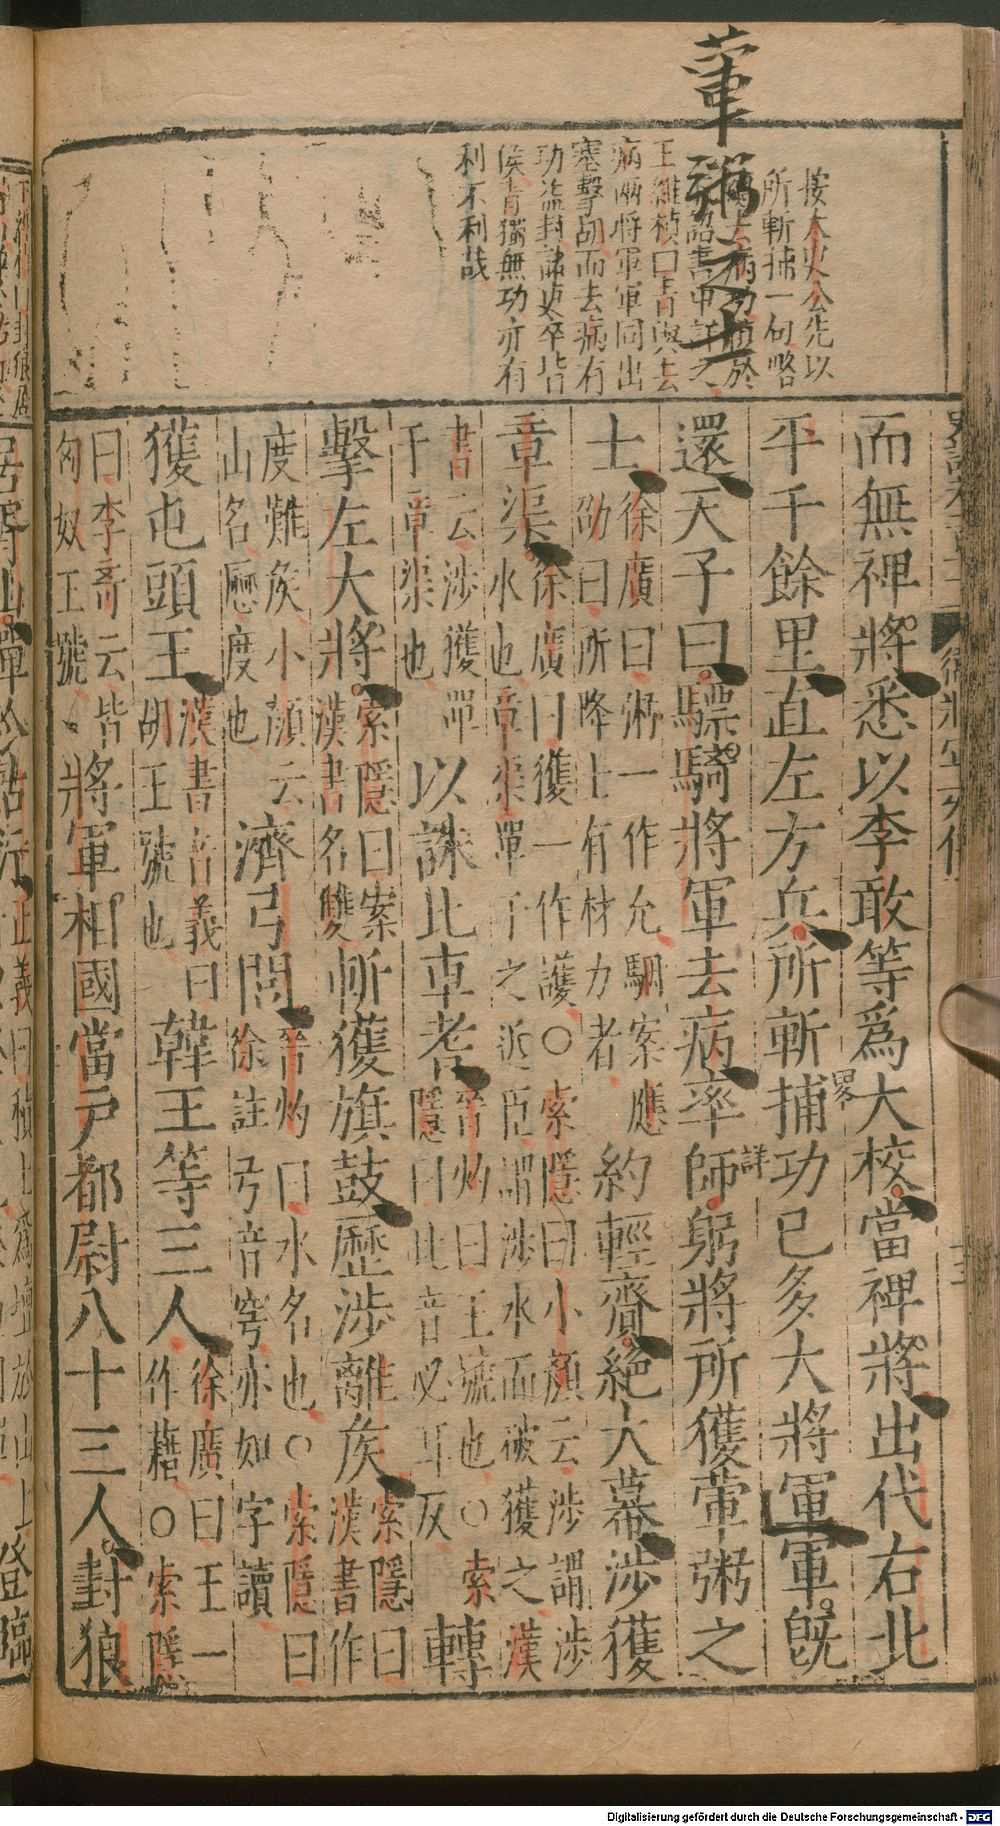 葷粥之士
按太史公先以
所斬捕一句略
詔書中詳之
王維楨曰青與去
病兩將軍軍同出
塞擊胡而去病有
功益封諸吏卒皆
侯青獨無功亦有
利不利哉
而無裨將悉以李敢等爲大校當裨將出代右北
平千餘里直左方兵所斬捕功已多大將軍軍既
畧
詳
還天子曰驃騎將軍去病率師躬將所獲葷粥之
士
徐廣曰粥一作允駰案應
劭曰所降士有材力者
約輕齎絕大幕涉獲
章渠
徐廣曰獲一作護○索隱曰小顏云涉謂涉
水也章渠單于之近臣謂涉水而破獲之漢
書云涉獲單
于章渠也
以誅比車耆
晉灼曰王號也○索
隱曰比音必耳反
轉
擊左大將
索隱曰案
漢書名雙
斬獲旗鼓歷涉離侯
索隱曰
漢書作
度難侯小顏云
山名歷度也
濟弓閭
晉灼曰水名也○索隱曰
徐註弓音穹亦如字讀
獲屯頭王
漢書音義曰
胡王號也
韓王等三人
徐廣曰王一
作藉○索隱
曰李奇云皆
匈奴王號
將軍相國當戶都尉八十三人封狼
登臨
Digitalisierung gefördert durch die Deutsche Forschungsgemeinschaft - DFG